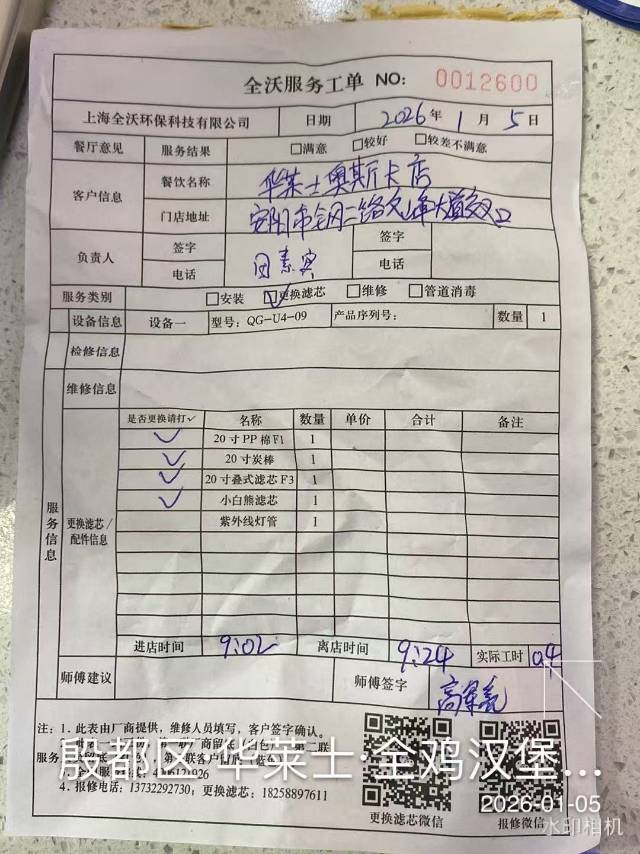 全沃服务工单 NO: 0012600
上海全沃环保科技有限公司 日期 2026年 1月 5日
餐厅意见 服务结果 □满意 □较好 □较差不满意
客户信息 餐饮名称 华莱士奥斯卡店
门店地址 安阳市 二路文峰大道交叉口
负责人 签字 田素宾 签字
电话 电话
服务类别 □安装 ☑更换滤芯 □维修 □管道消毒
设备信息 设备一 型号: QG-U4-09 产品序列号: 数量 1
检修信息
维修信息
服务信息
更换滤芯/配件信息
是否更换请打✓ 名称 数量 单价 合计 备注
✓ 20寸PP棉F1 1
✓ 20寸炭棒 1
✓ 20寸叠式滤芯F3 1
✓ 小白熊滤芯 1
紫外线灯管 1
进店时间 9:02 离店时间 9:24 实际工时 0.4
师傅建议 师傅签字
注: 1. 此表由厂商提供,维修人员填写,客户签字确认。
4. 报修电话: 13732292730; 更换滤芯: 18258897611
更换滤芯微信 报修微信
殷都区 华莱士·全鸡汉堡...
2026-01-05
水印相机